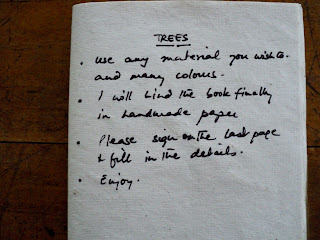 TREES
• use any material you wish to
and many colours.
• I will bind the book finally
in handmade paper
• Please sign on the last page
& fill in the details.
• Enjoy.